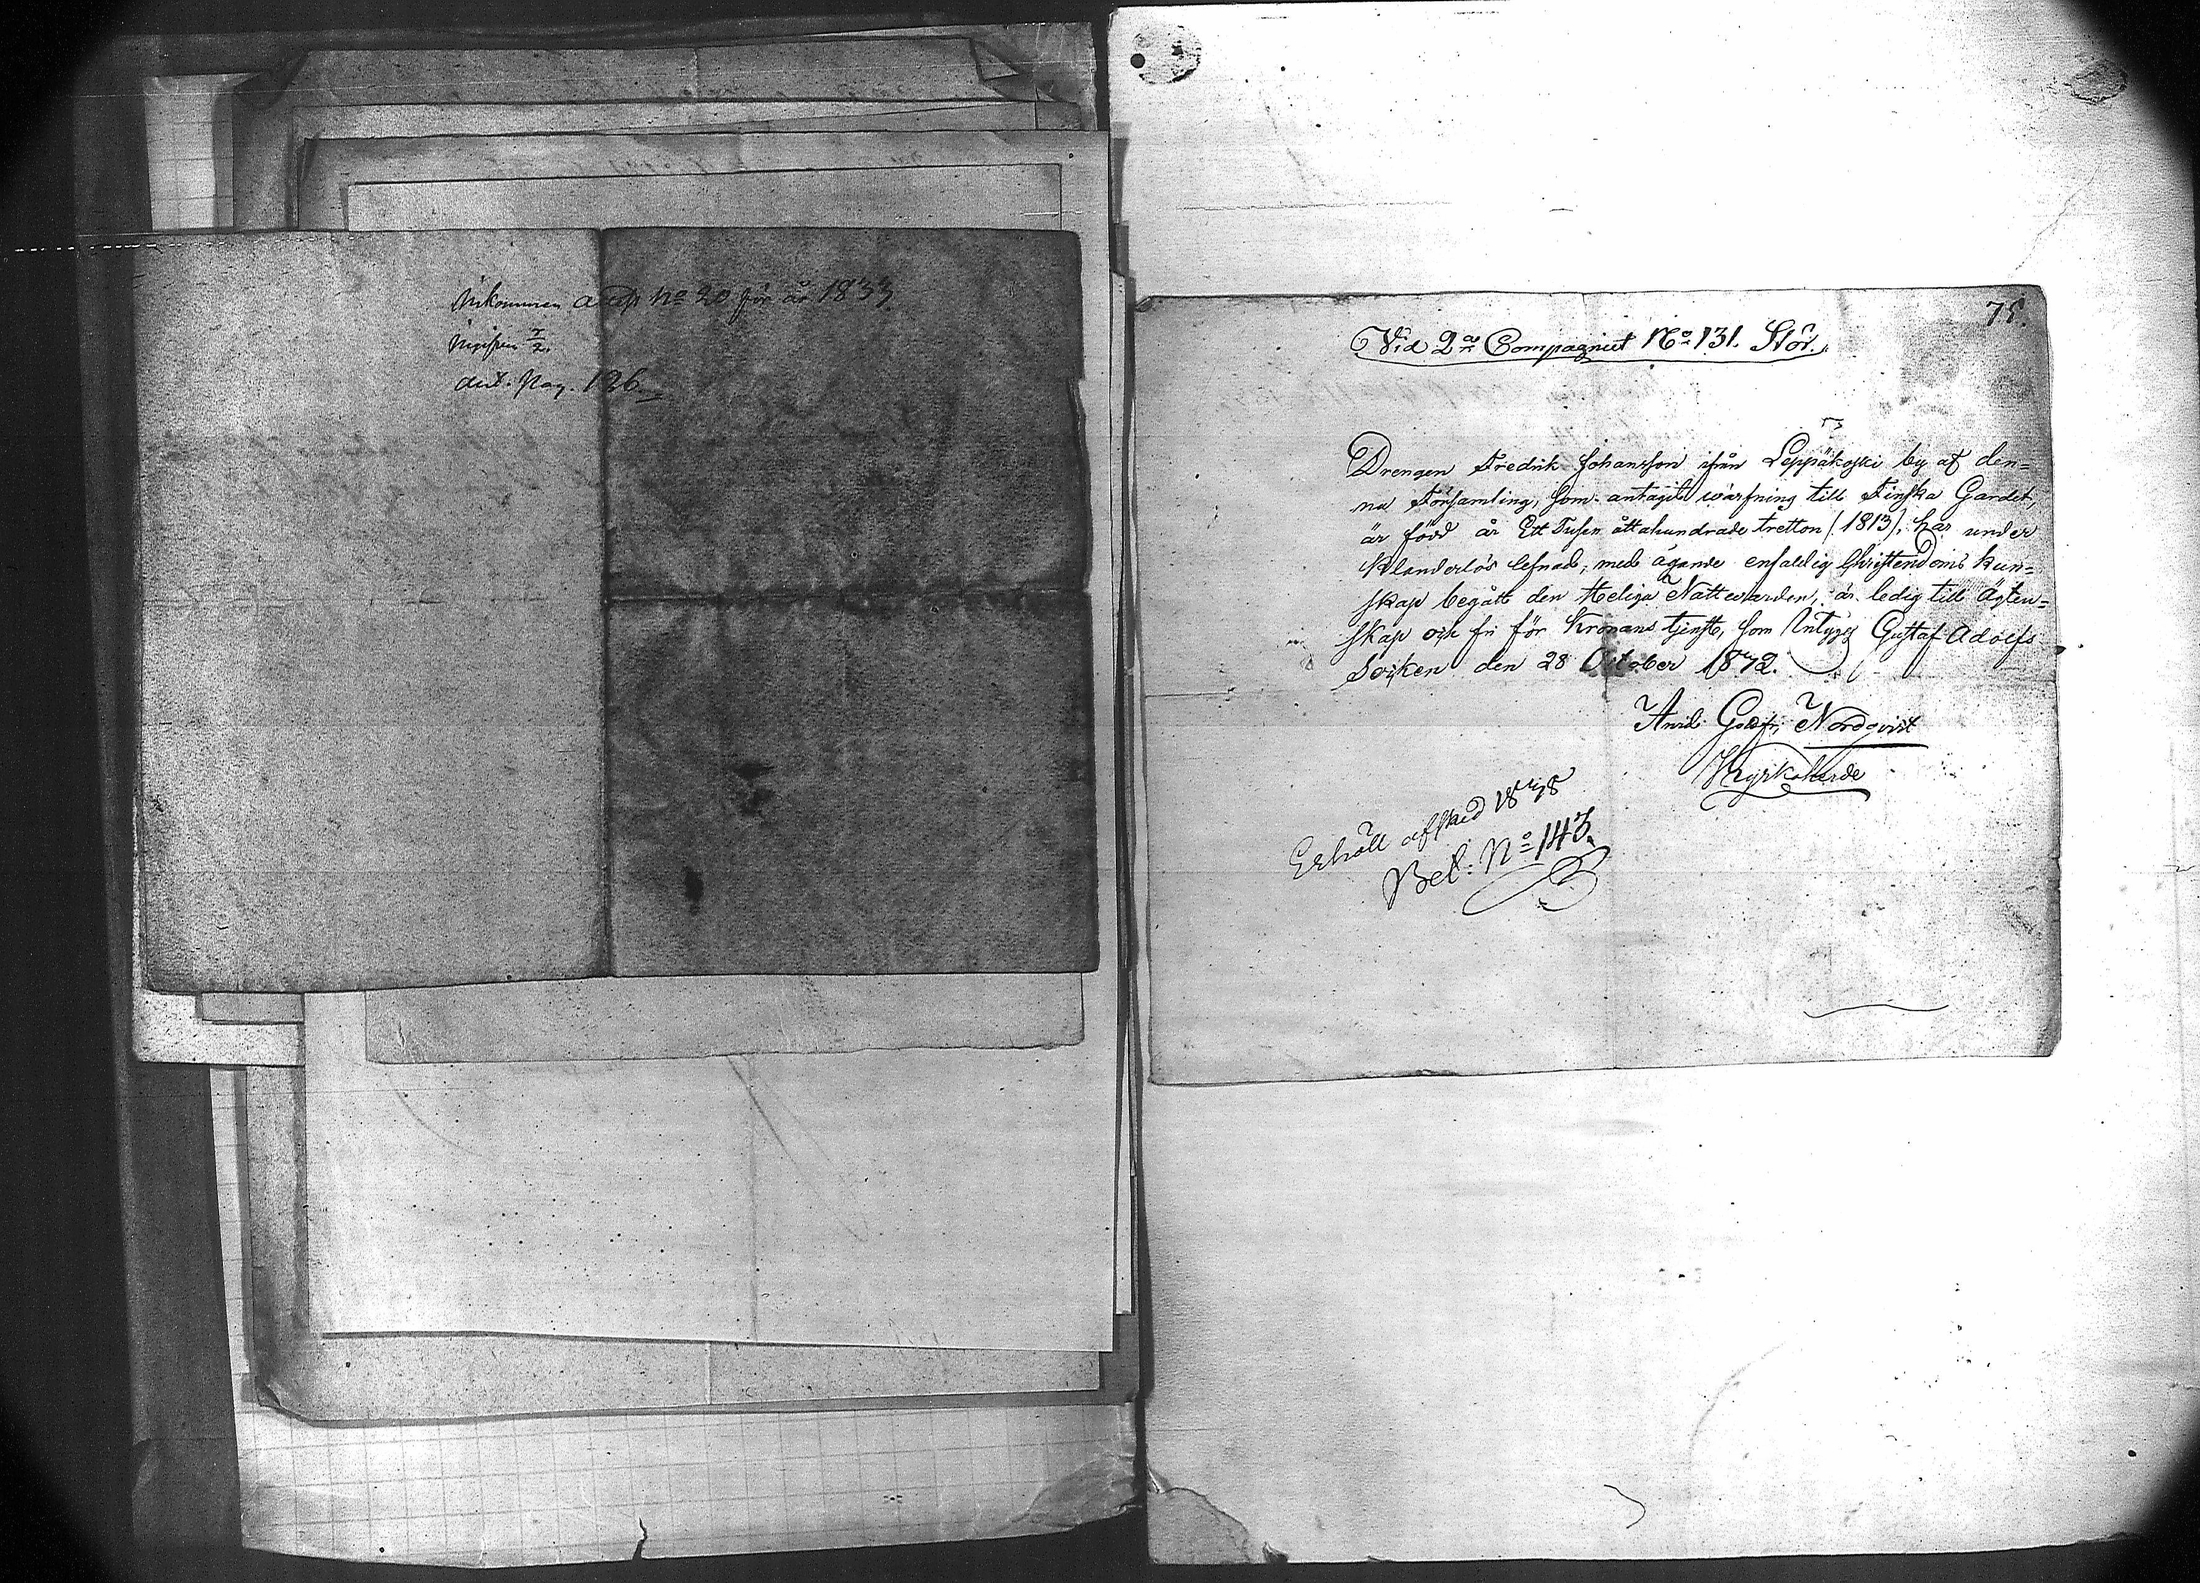 Ankommen a Rap No 20 för år 1833.
dict. Pag. 126.
75.
Vid 2a Compagniet No 131. Stör.
Drengen Fredrik Johansson ifrån Leppäkoski by af den-
na Församling, som antagit wärfning till Finska Gardet,
är född år Ett Tusen åttahundrade tretton (1813), har under
klanderlös lefnad, med ägande enfaldig Christendoms kun-
skap begått den Heliga Nattwarden, är ledig till Ägten-
skap och fri för Kronans tjenst, som Intygas Gustaf Adolfs
Socken den 28 October 1832.
Arvid Godfr. Nordqvist
Kyrkoherde
Erhöll afsked 1838
Bet: No 143.